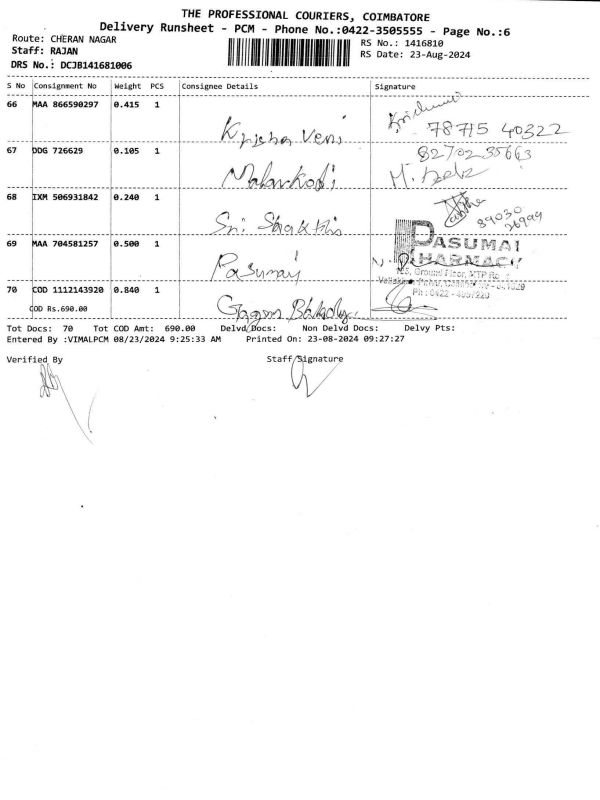 THE PROFESSIONAL COURIERS, COIMBATORE
Delivery Runsheet - PCM - Phone No.:0422-3505555 - Page No.:6
Route: CHERAN NAGAR
RS No.: 1416810
Staff: RAJAN
RS Date: 23-Aug-2024
DRS No.: DCJB141681006
S No Consignment No Weight PCS Consignee Details Signature
66 MAA 866590297 0.415 1
Krishna Veni
78715 40322
67 DDG 726629 0.105 1
82702 35663
Malarkodi
68 IXM 506931842 0.240 1
Sri Shakthi
89030
26999
69 MAA 704581257 0.500 1
PASUMAI
PHARMACY
Pasumai
Ground Floor, MTP Ro
70 COD 1112143920 0.840 1
COD Rs.690.00
Tot Docs: 70 Tot COD Amt: 690.00 Delvd Docs: Non Delvd Docs: Delvy Pts:
Entered By :VIMALPCM 08/23/2024 9:25:33 AM Printed On: 23-08-2024 09:27:27
Verified By Staff Signature